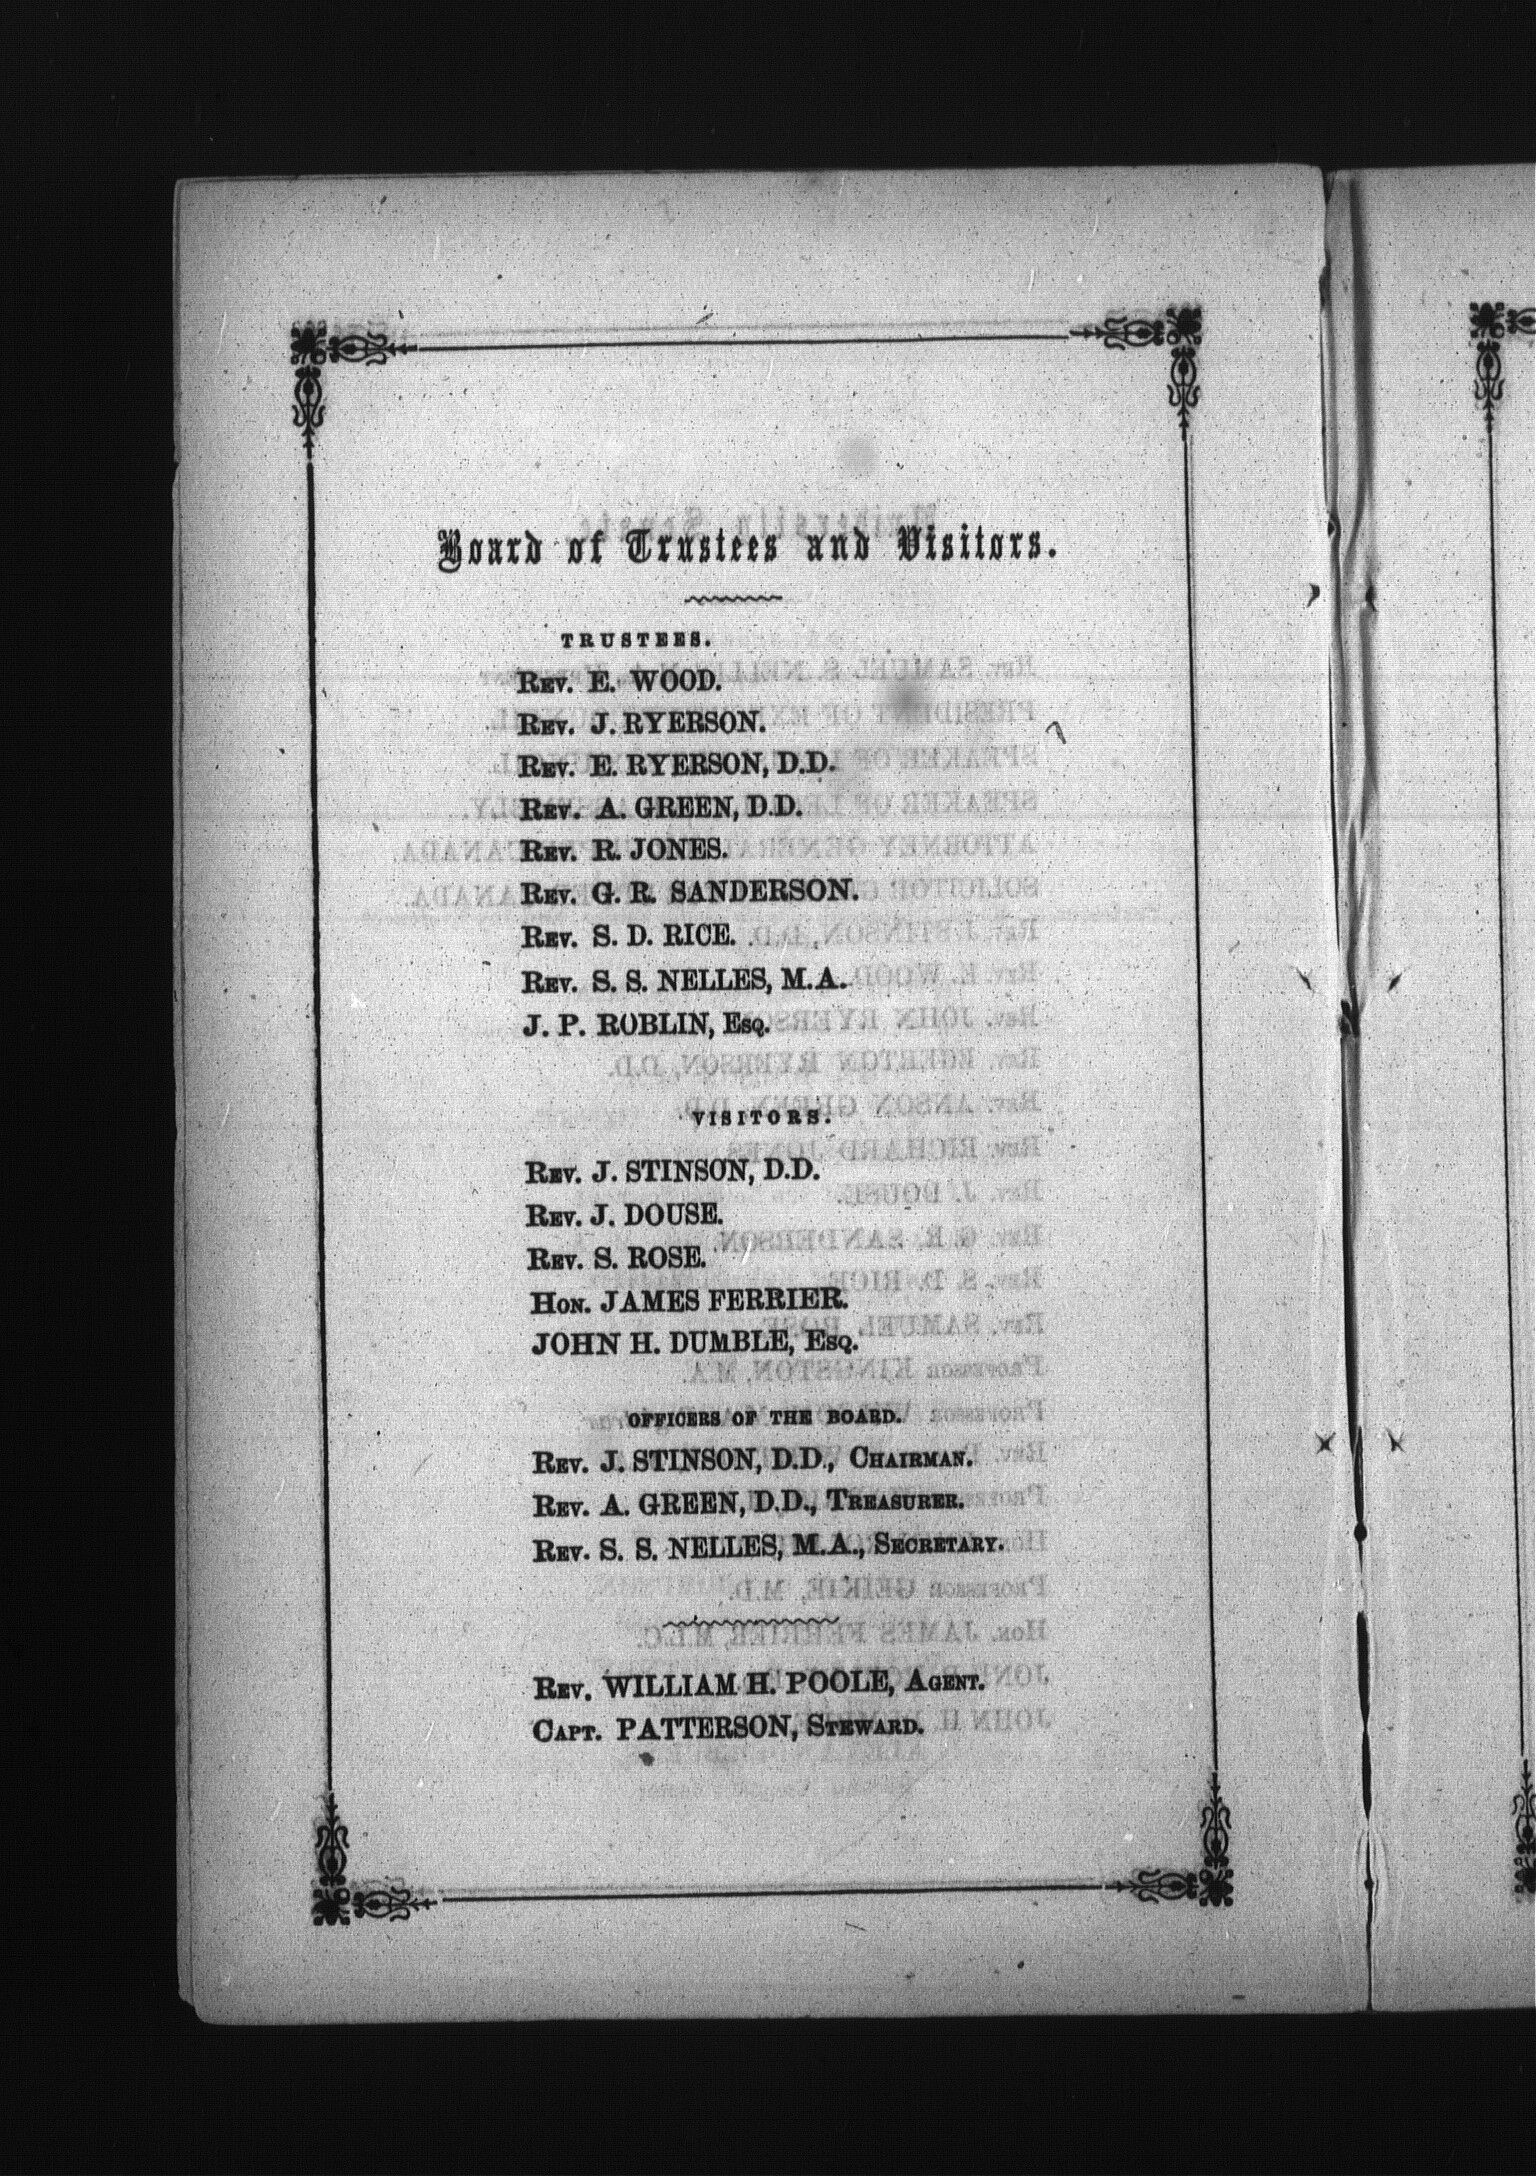 Board of Trustees and Visitors.
TRUSTEES.
REV. E. WOOD.
REV. J. RYERSON.
REV. E. RYERSON, D.D.
REV. A. GREEN, D.D.
REV. R. JONES.
REV. G. R. SANDERSON.
REV. S. D. RICE.
REV. S. S. NELLES, M.A.
J. P. ROBLIN, ESQ.
VISITORS.
REV. J. STINSON, D.D.
REV. J. DOUSE.
REV. S. ROSE.
HON. JAMES FERRIER.
JOHN H. DUMBLE, ESQ.
OFFICERS OF THE BOARD.
REV. J. STINSON, D.D., CHAIRMAN.
REV. A. GREEN, D.D., TREASURER.
REV. S. S. NELLES, M.A., SECRETARY.
REV. WILLIAM H. POOLE, AGENT.
CAPT. PATTERSON, STEWARD.